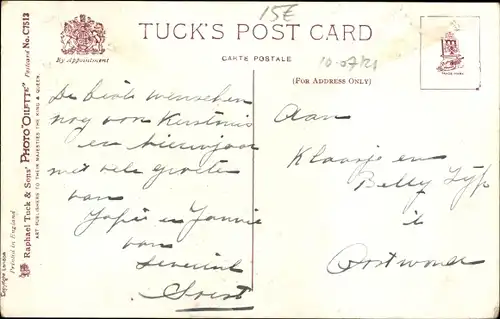 15E
TUCK'S POST CARD
CARTE POSTALE
By Appointment
(FOR ADDRESS ONLY)
TRADE MARK
De beste wenschen
nog van Kerstmis
en nieuwjaar
met vele groeten
van
Japie en Jannie
van
Soest
Aan
Klaasje en
Belly
Oostwoude
Copyright London
Printed in England
Raphael Tuck & Sons' PHOTO "OILETTE" Postcard No. C7513
ART PUBLISHERS TO THEIR MAJESTIES THE KING & QUEEN.